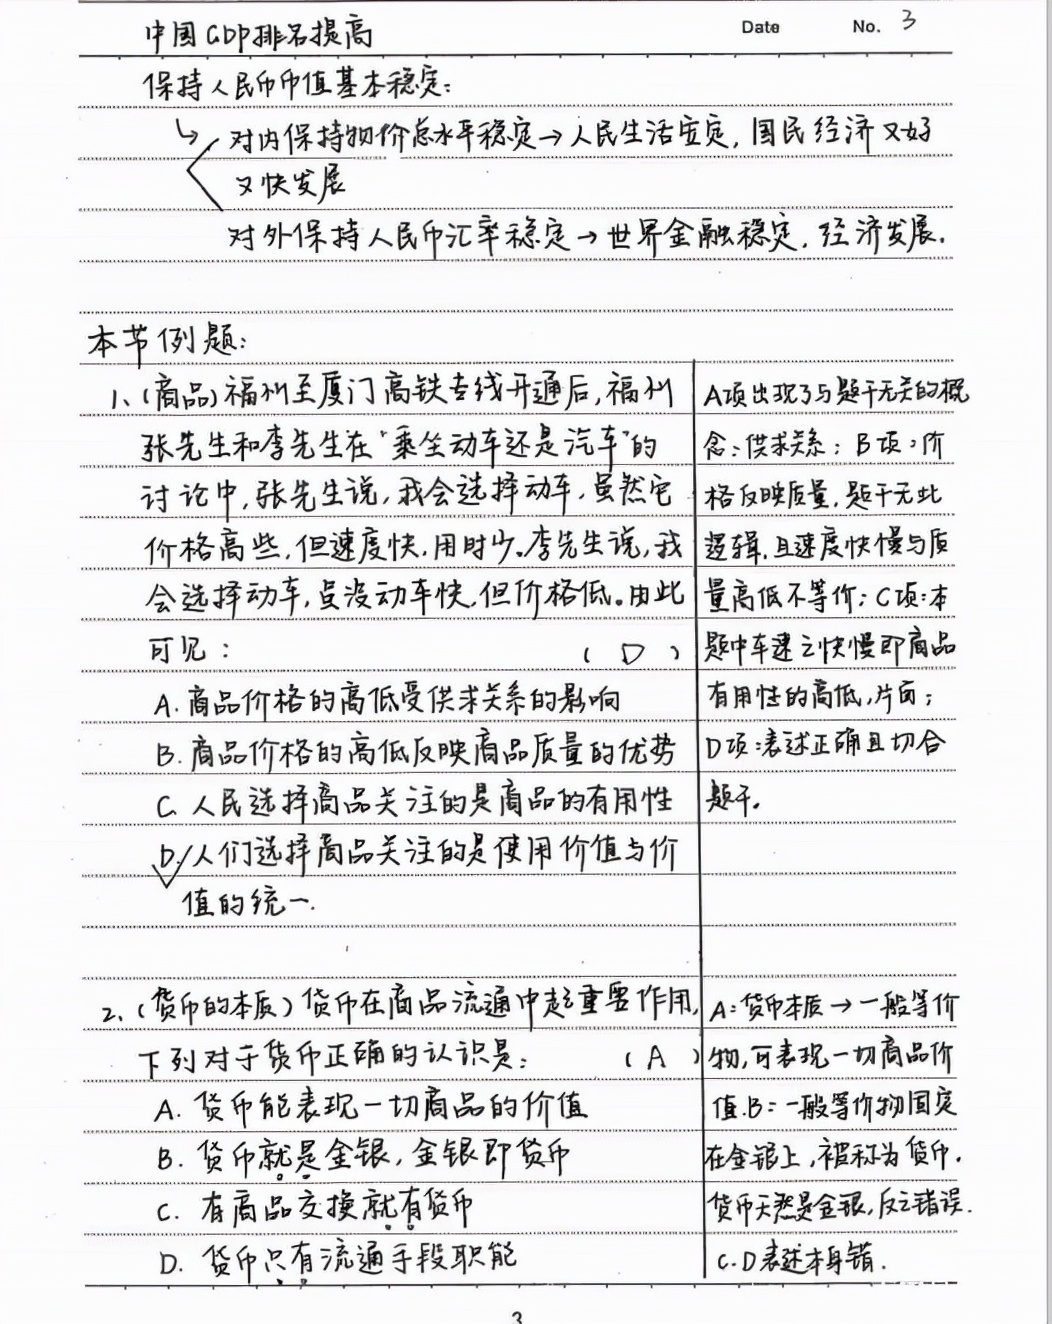 中国GDP排名提高
Date No. 3
保持人民币币值基本稳定:
对内保持物价总水平稳定→人民生活安定,国民经济又好
又快发展
对外保持人民币汇率稳定→世界金融稳定,经济发展.
本节例题:
1、(商品)福州至厦门高铁专线开通后,福州
张先生和李先生在“乘坐动车还是汽车”的
讨论中,张先生说,我会选择动车,虽然它
价格高些,但速度快,用时少。李先生说,我
会选择动车,虽没动车快,但价格低。由此
可见: ( D )
A.商品价格的高低受供求关系的影响
B.商品价格的高低反映商品质量的优势
C.人民选择商品关注的是商品的有用性
D.人们选择商品关注的是使用价值与价
值的统一.
A项出现了与题干无关的概
念:供求关系; B项:价
格反映质量,题干无此
逻辑,且速度快慢与质
量高低不等价;C项:本
题中车速之快慢即商品
有用性的高低,片面;
D项:表述正确且切合
题干。
2、(货币的本质)货币在商品流通中起重要作用,
下列对于货币正确的认识是: ( A )
A.货币能表现一切商品的价值
B.货币就是金银,金银即货币
C.有商品交换就有货币
D.货币只有流通手段职能
A:货币本质→一般等价
物,可表现一切商品价
值.B:一般等价物固定
在金银上,被称为货币.
货币天然是金银,反之错误.
C.D表述本身错.
3